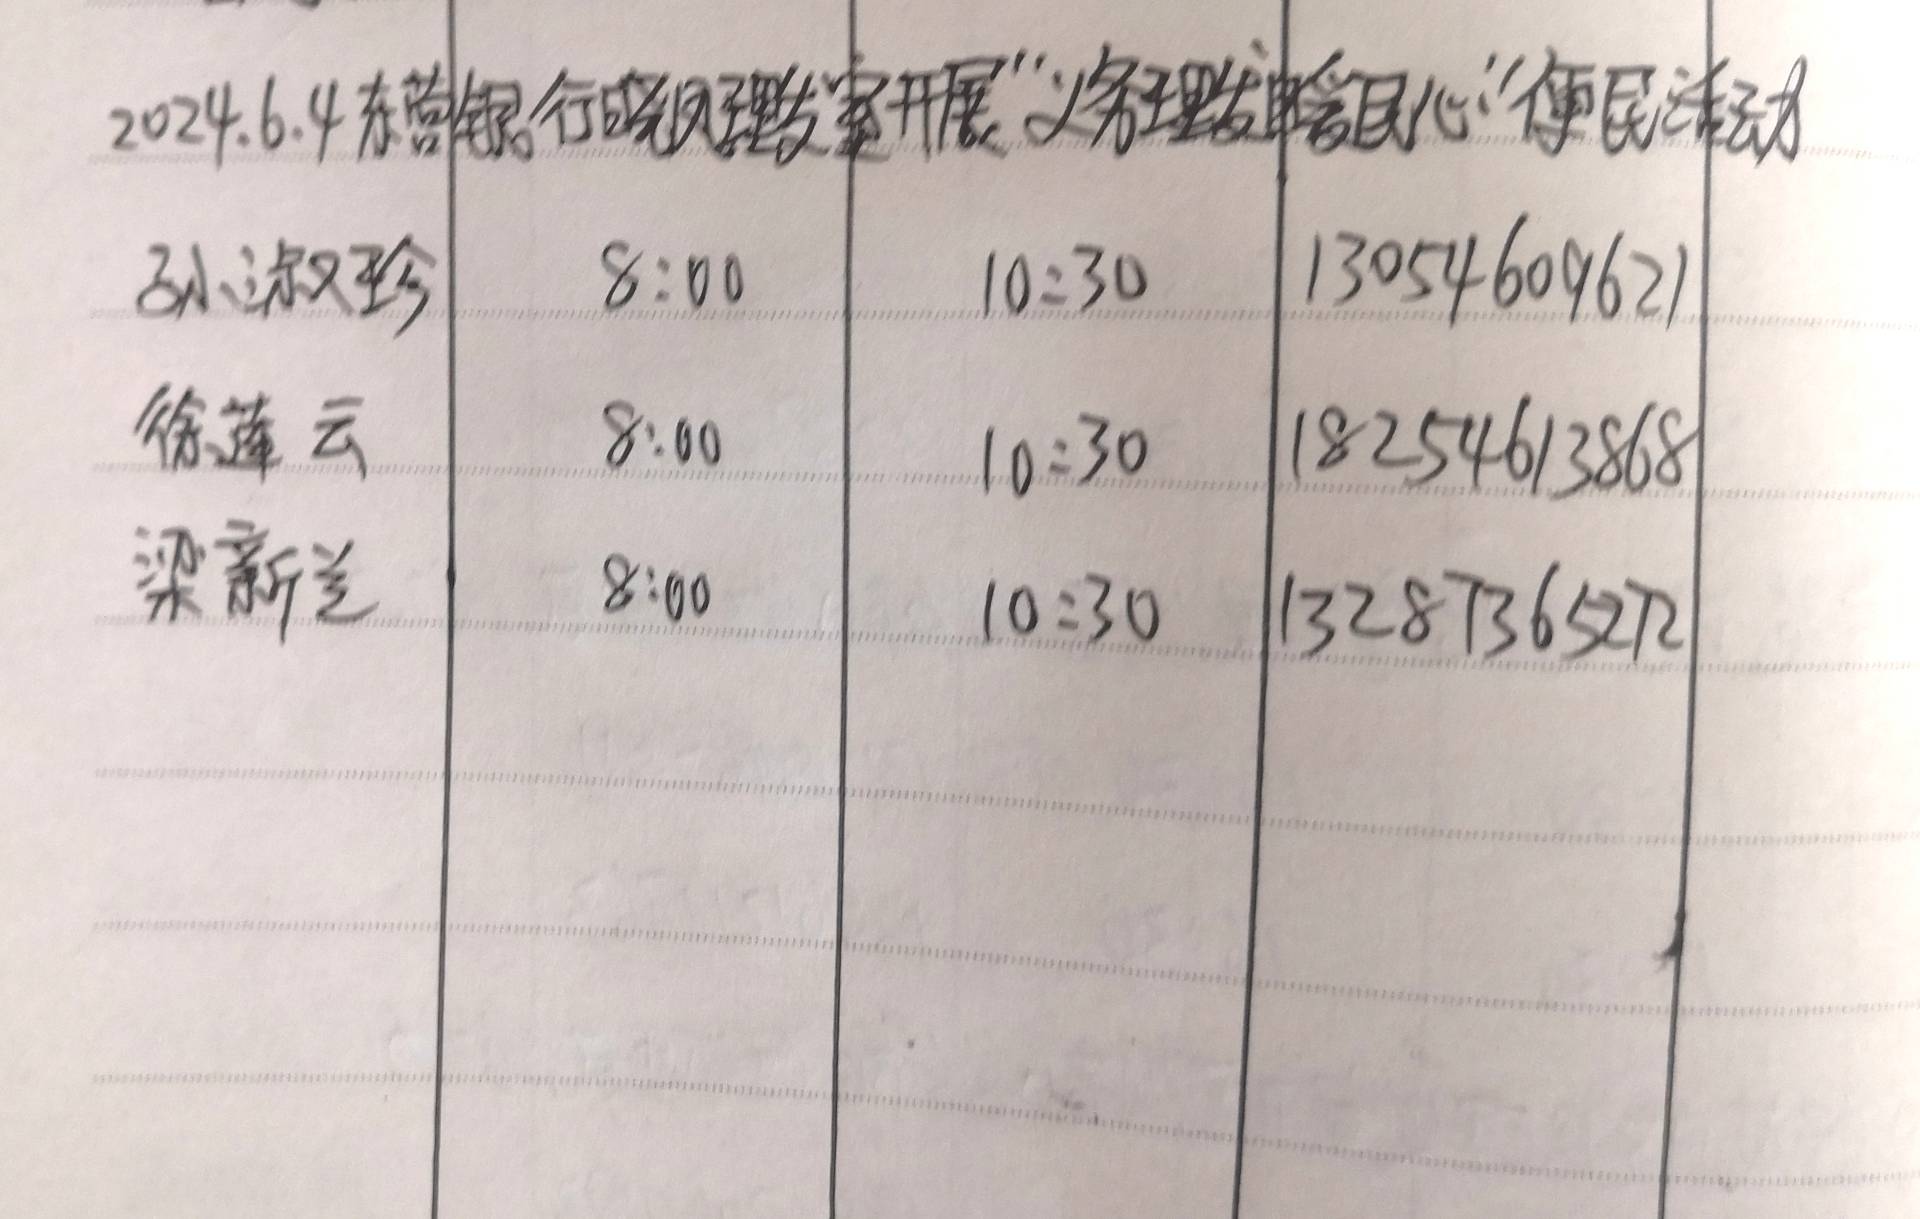 2024.6.4东营银行晓风理发室开展“义务理发暖民心”便民活动
孙淑珍 8:00 10:30 13054609621
徐莲云 8:00 10:30 18254613868
梁新兰 8:00 10:30 13287365272